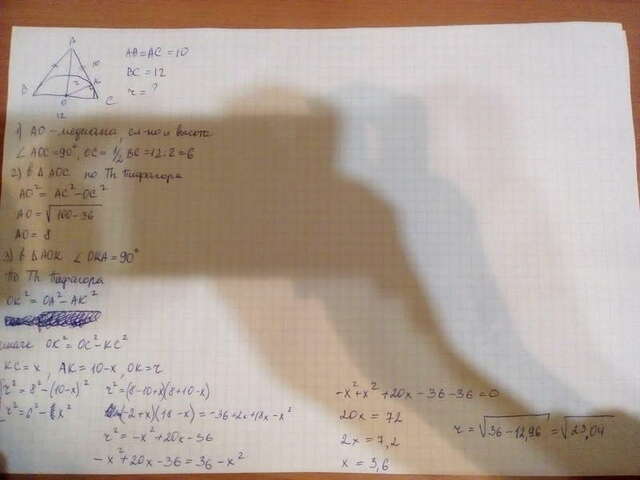 A
10
K
r
B
O
C
12
AB=AC=10
BC=12
r=?
1) AO-медиана, сл-но и высота
∠AOC=90°, OC=1/2 BC=12:2=6
2) В ΔAOC по Th Пифагора
AO²=AC²-OC²
AO=√100-36
AO=8
3) В ΔAOK ∠OKA=90°
По Th Пифагора
OK²=OA²-AK²
иначе OK²=OC²-KC²
KC=x, AK=10-x, OK=r
r²=8²-(10-x)² r²=(8-10+x)(8+10-x)
r²=6²-x² (-2+x)(18-x)=-36+2x+18x-x²
r²=-x²+20x-36
-x²+20x-36=36-x²
-x²+x²+20x-36-36=0
20x=72
2x=7,2
x=3,6
r=√36-12,96=√23,04